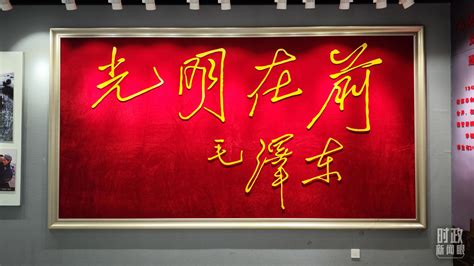 光明在前
毛泽东
时政
新闻眼